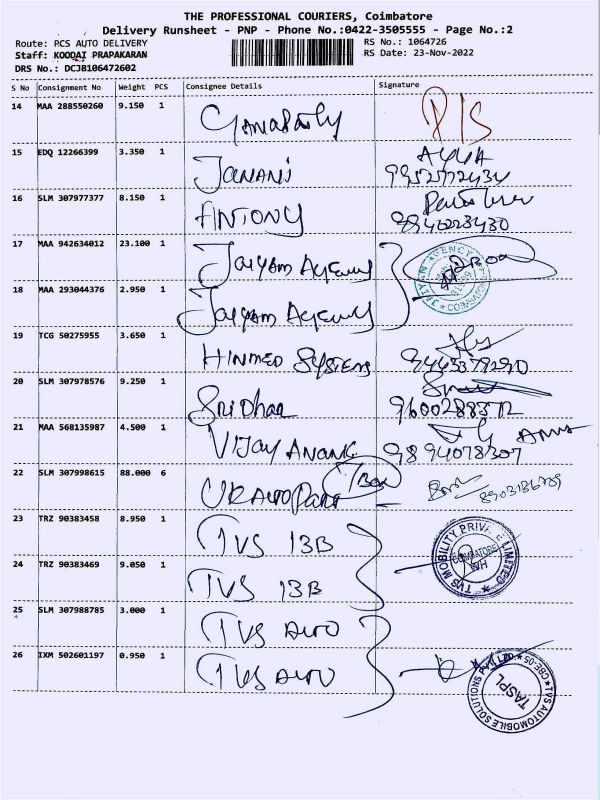 THE PROFESSIONAL COURIERS, Coimbatore
Delivery Runsheet - PNP - Phone No.:0422-3505555 - Page No.:2
Route: PCS AUTO DELIVERY
RS No.: 1064726
Staff: KOODAI PRAPAKARAN
RS Date: 23-Nov-2022
DRS No.: DCJB106472602
S No Consignment No Weight PCS Consignee Details Signature
14 MAA 288550260 9.150 1
15 EDQ 12266399 3.350 1 JANANi
9952572434
16 SLM 307977377 8.150 1 FINTONY
9840223430
17 MAA 942634012 23.100 1 Jaiyam Agency
JAIYAM AGENCY
COIMBATORE
18 MAA 293044376 2.950 1 Jaiyam Agency
19 TCG 50275955 3.650 1 HINMED SYSTEMS
9443379290
20 SLM 307978576 9.250 1 Sri Dhar
9600288372
21 MAA 568135987 4.500 1 VIJAY ANAND
9894078307
22 SLM 307998615 88.000 6 UR AUTO PART
8903186789
23 TRZ 90383458 8.950 1 TVS 13B
TVS MOBILITY PRIVATE LIMITED
COIMBATORE
WH
24 TRZ 90383469 9.050 1 TVS 13B
25 SLM 307988785 3.000 1 TVS AUTO
26 IXM 502601197 0.950 1 TVS AUTO
TVS AUTOMOBILE SOLUTIONS PVT. LTD. CBE-05
TASPL